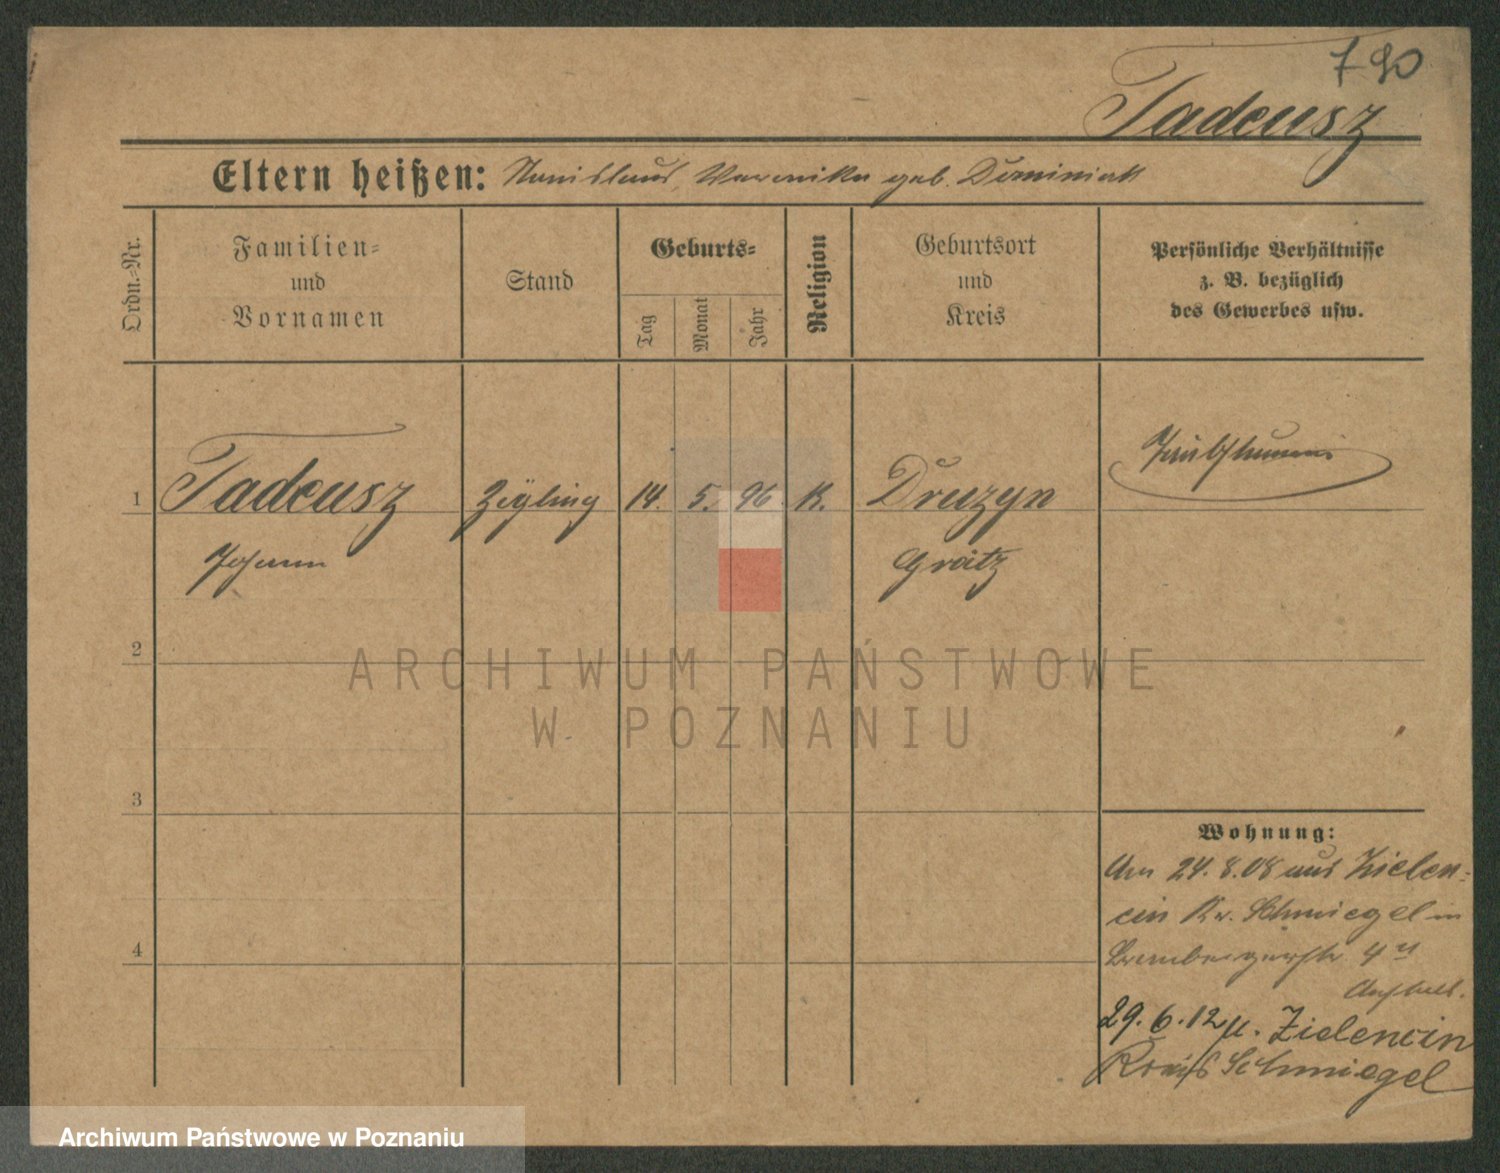 790
Tadeusz
Eltern heißen: Stanislaus, Veronika geb. Dominiak
Ordn.-Nr.
Familien-
und
Vornamen
Stand
Geburts-
Tag
Monat
Jahr
Religion
Geburtsort
und
Kreis
Persönliche Verhältnisse
z. B. bezüglich
des Gewerbes usw.
1 Tadeusz Zögling 14. 5. 96. K. Druzyn
Johann Grätz
Taubstumm
2
3
4
Wohnung:
Am 24. 8. 08 aus Zielen-
cin Kr. Schmiegel in
4
29. 6. 12 n. Zielencin
Kreis Schmiegel
ARCHIWUM PAŃSTWOWE
W POZNANIU
Archiwum Państwowe w Poznaniu